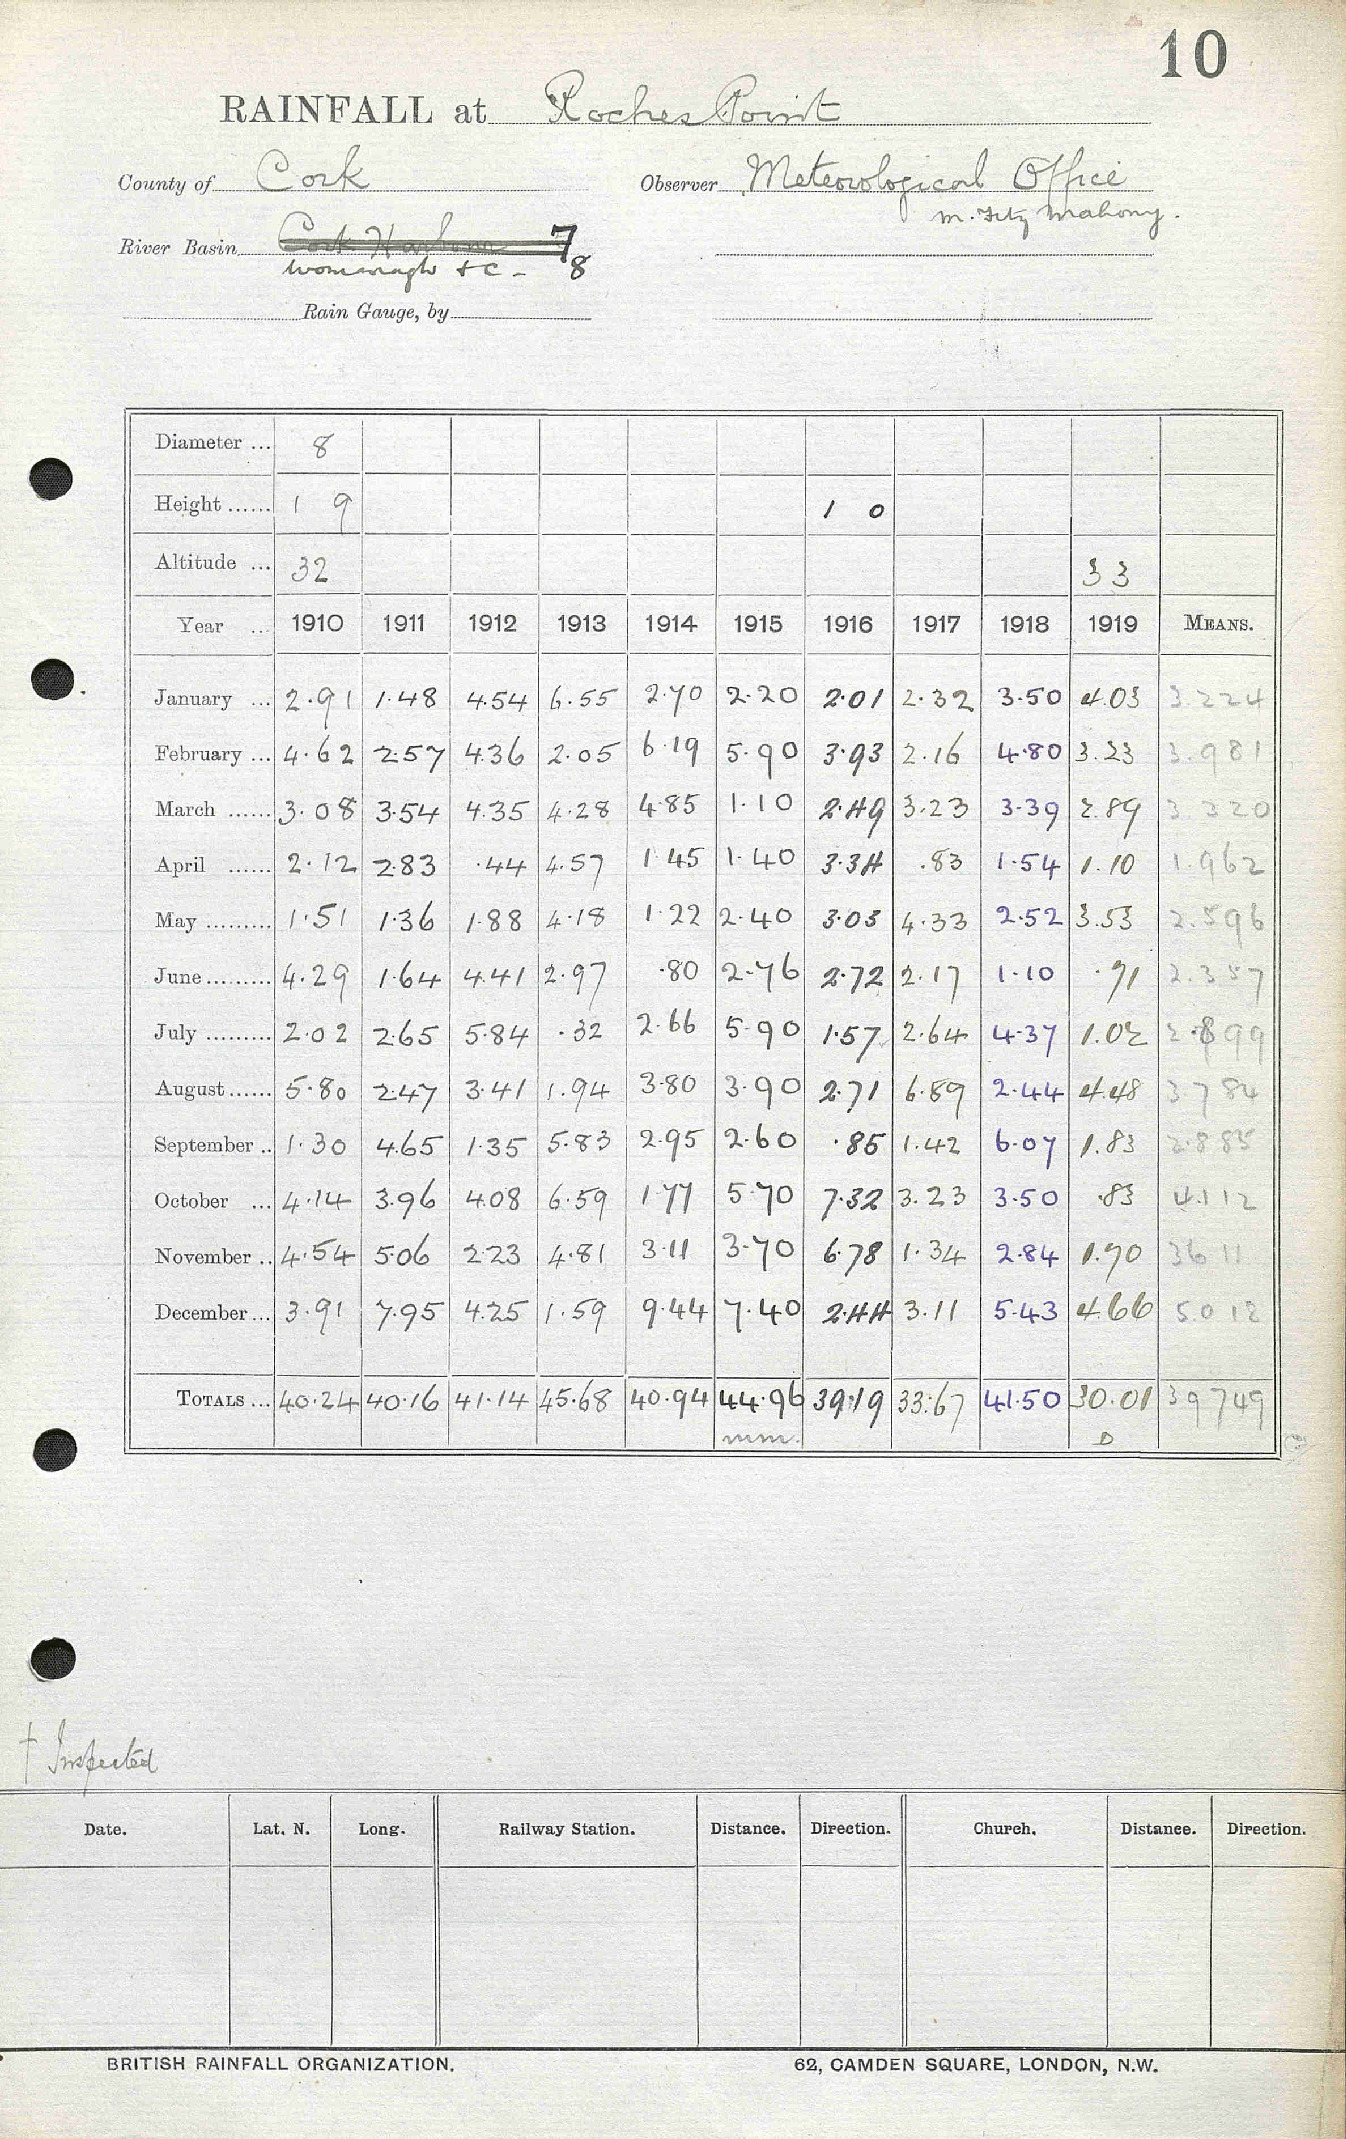 10
RAINFALL at Roches Point
County of Cork Observer Meteorological Office
M. Fitz Mahony.
River Basin Cork Harbour 7
Womanagh &c - 8
Rain Gauge, by
Diameter ... 8
Height ...... 1 9 1 0
Altitude ... 32 33
Year ... 1910 1911 1912 1913 1914 1915 1916 1917 1918 1919 MEANS.
January ... 2.91 1.48 4.54 6.55 2.70 2.20 2.01 2.32 3.50 4.03 3.224
February ... 4.62 2.57 4.36 2.05 6.19 5.90 3.93 2.16 4.80 3.23 3.981
March ...... 3.08 3.54 4.35 4.28 4.85 1.10 2.49 3.23 3.39 2.89 3.320
April ...... 2.12 2.83 .44 4.57 1.45 1.40 3.34 .83 1.54 1.10 1.962
May ......... 1.51 1.36 1.88 4.18 1.22 2.40 3.03 4.33 2.52 3.53 2.596
June ......... 4.29 1.64 4.41 2.97 .80 2.76 2.72 2.17 1.10 .71 2.357
July ......... 2.02 2.65 5.84 .32 2.66 5.90 1.57 2.64 4.37 1.02 2.899
August ...... 5.80 2.47 3.41 1.94 3.80 3.90 2.71 6.89 2.44 4.48 3.784
September .. 1.30 4.65 1.35 5.83 2.95 2.60 .85 1.42 6.07 1.83 2.885
October ... 4.14 3.96 4.08 6.59 1.77 5.70 7.32 3.23 3.50 .83 4.112
November .. 4.54 5.06 2.23 4.81 3.11 3.70 6.78 1.34 2.84 1.70 3611
December ... 3.91 7.95 4.25 1.59 9.44 7.40 2.44 3.11 5.43 4.66 5.012
TOTALS ... 40.24 40.16 41.14 45.68 40.94 44.96 39.19 33.67 41.50 30.01 39749
mm. D
† Inspected
Date. Lat. N. Long. Railway Station. Distance. Direction. Church. Distance. Direction.
BRITISH RAINFALL ORGANIZATION. 62, CAMDEN SQUARE, LONDON, N.W.